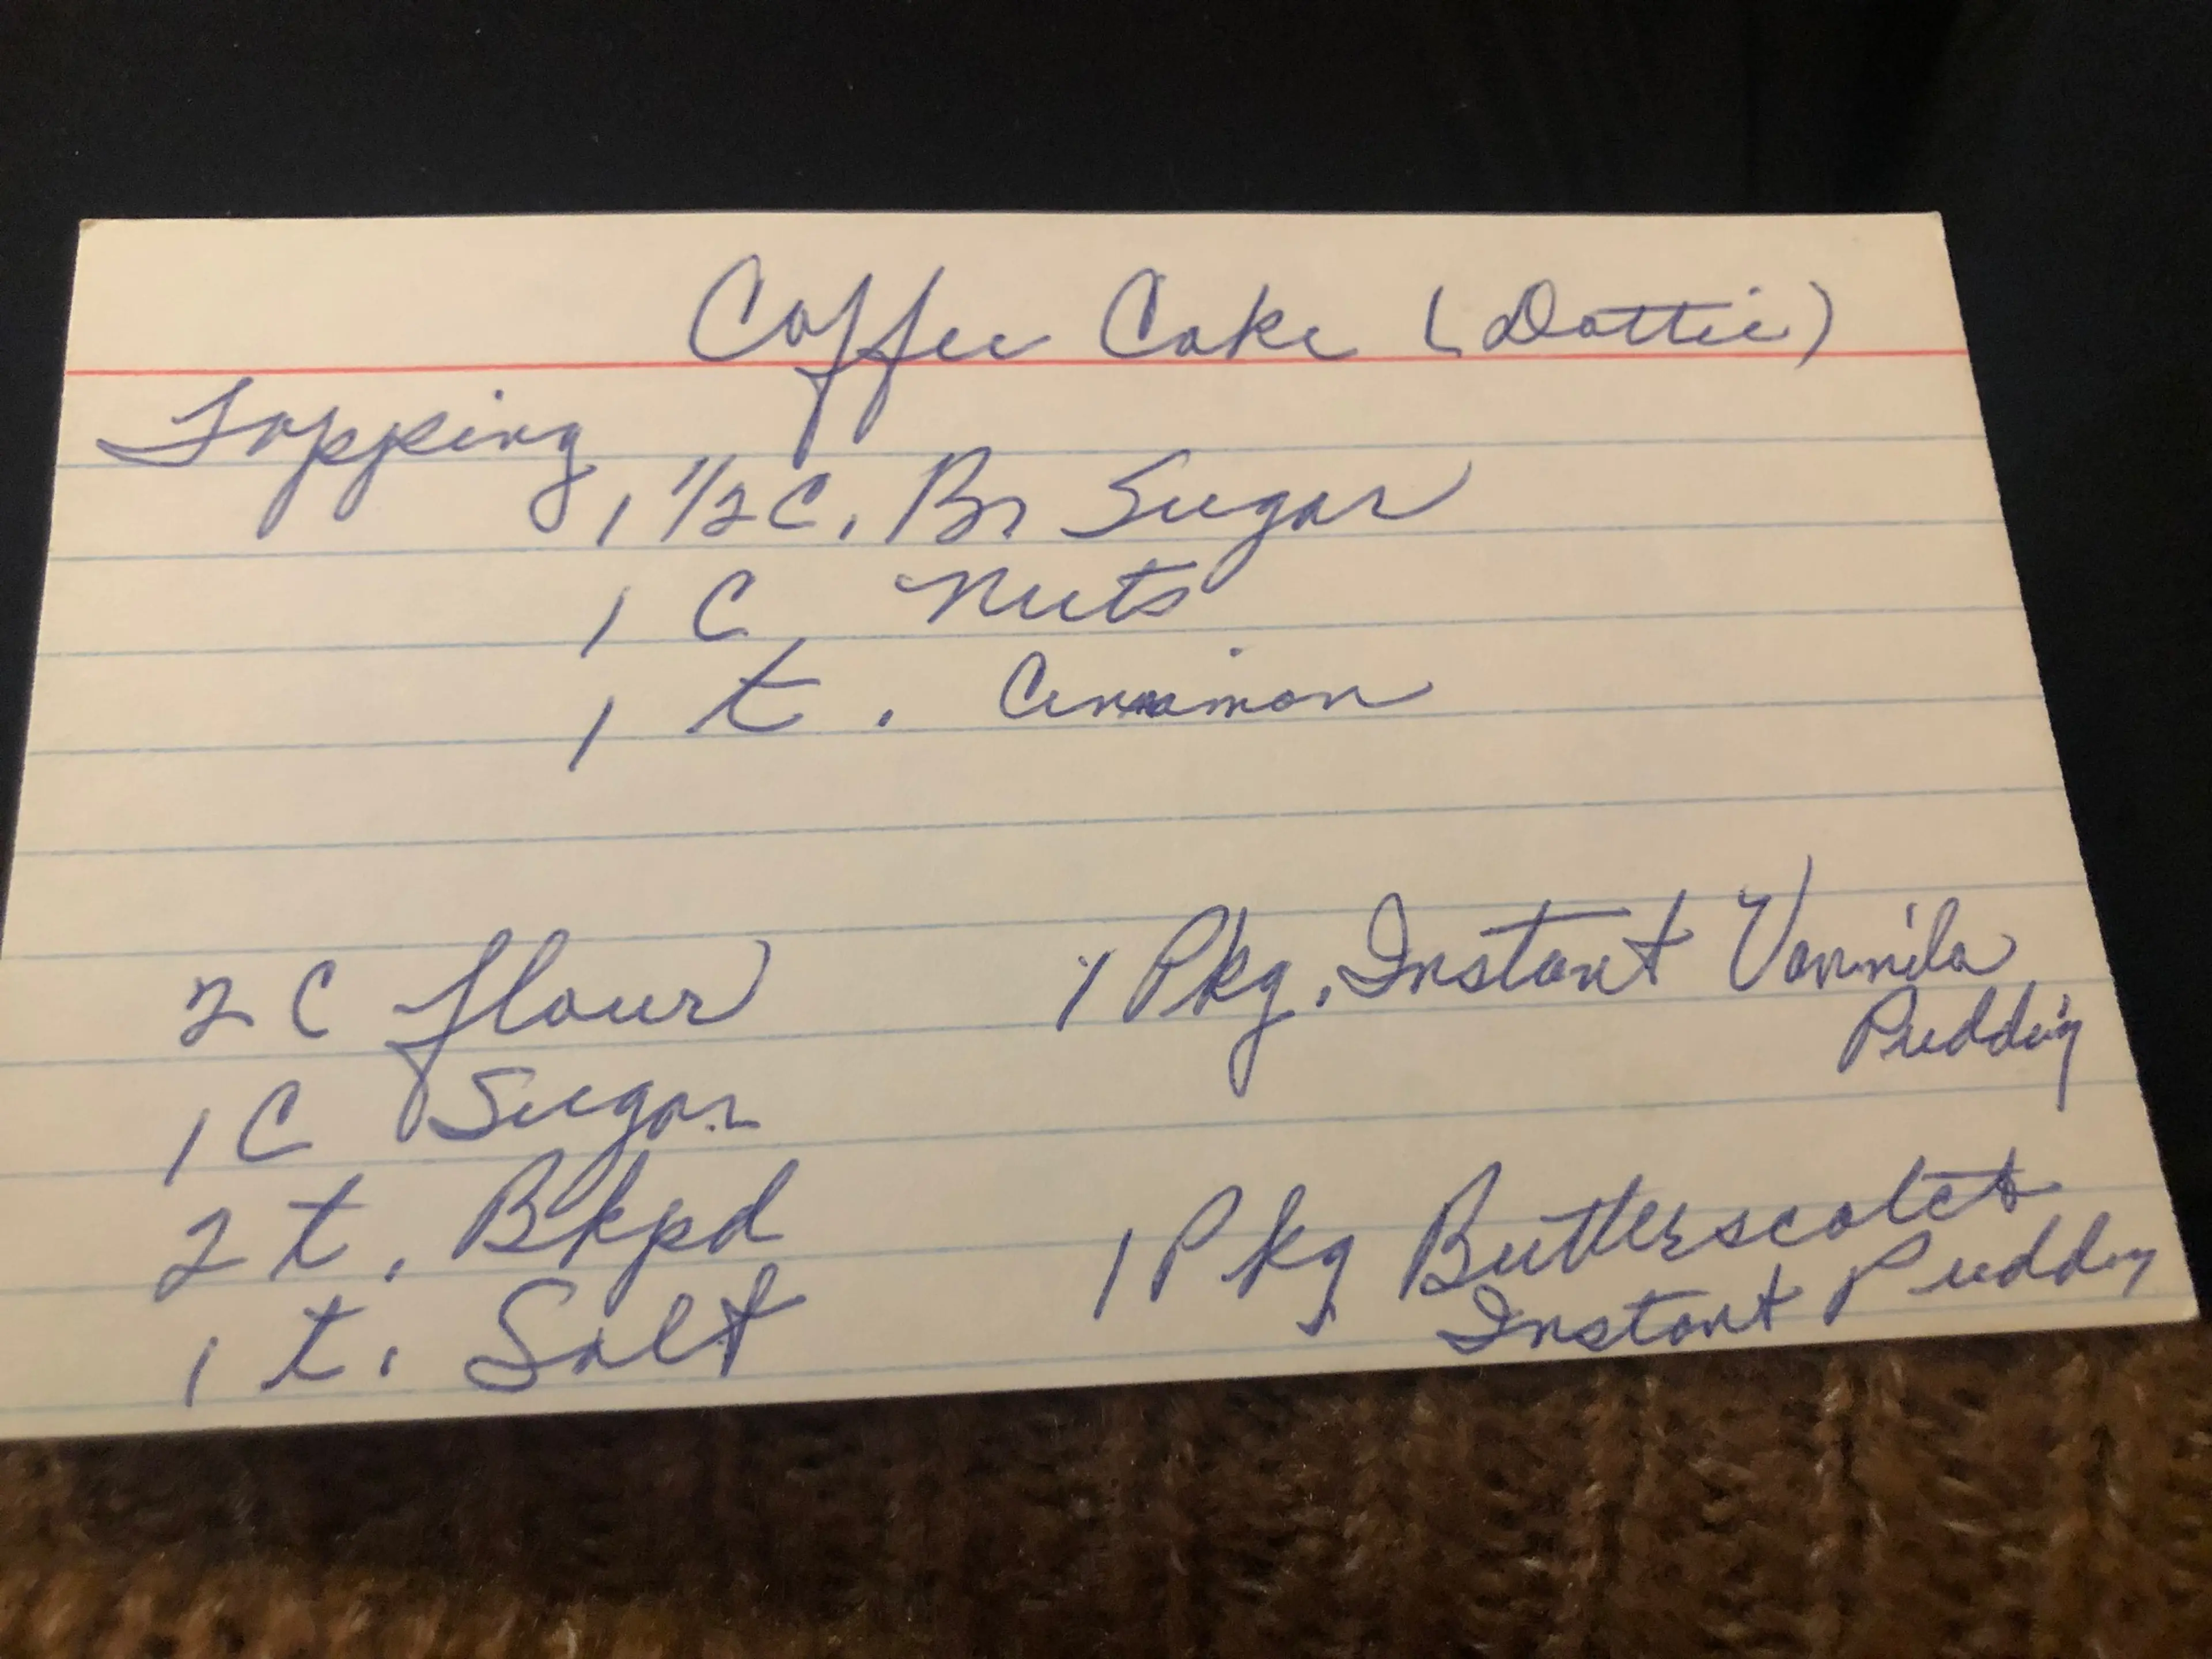 Coffee Cake (Dottie)
Topping
1 1/2 C. Br Sugar
1 C Nuts
1 t. Cinnamon
2 C flour
1 C Sugar
2 t. Bkpd
1 t. Salt
1 Pkg. Instant Vannila
Pudding
1 Pkg Butterscotch
Instant Pudding